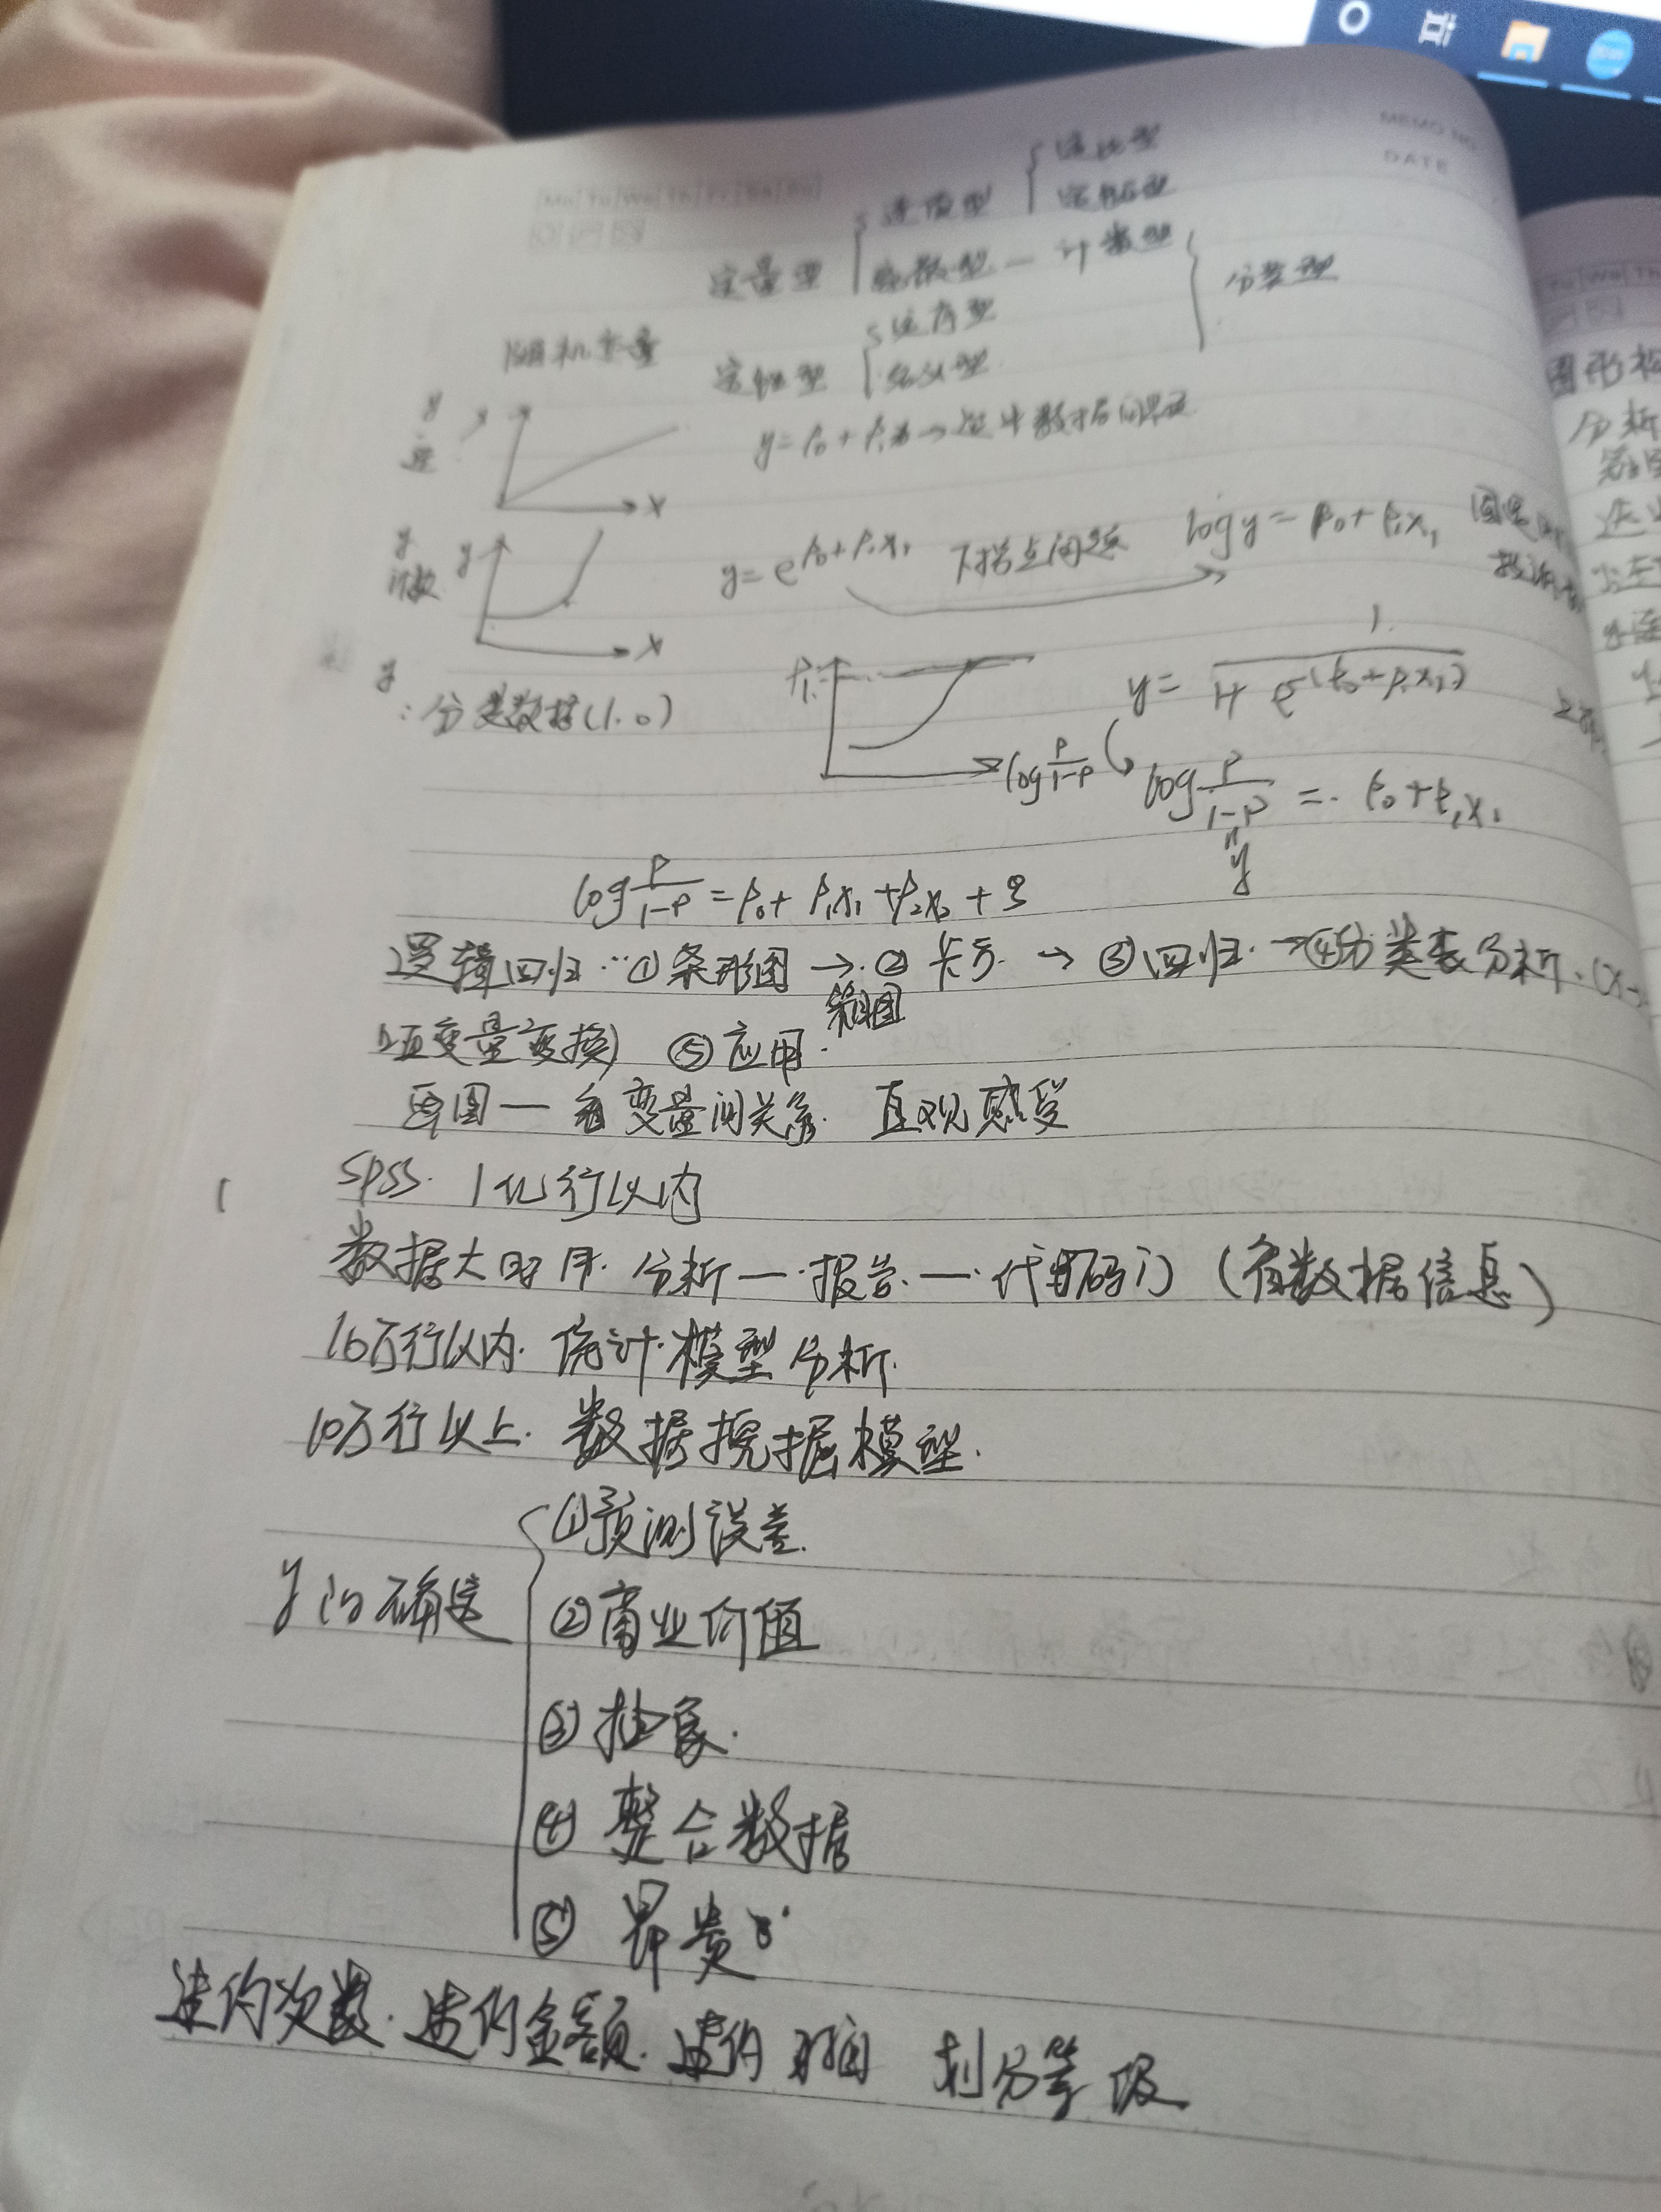 MEMO NO.
DATE
Mo Tu We Th Fr Sa Su
连续型 { 定比型
定距型
定量型 { 离散型 — 计数型 } 分类型
随机变量
定序型
定性型 { 名义型
y
x
y = β₀ + β₁x →
y
计数
y
x
y = e^(β₀+β₁x₁) 下拐点问题 log y = β₀ + β₁x₁
y
: 分类数据(1.0)
P
1
log P/(1-P)
y = 1/(1+e^-(β₀+β₁x₁))
log P/(1-P) = β₀+β₁x₁
y
log P/(1-P) = β₀ + β₁x₁ + β₂x₂ + ε
逻辑回归: ①条形图 → ② 卡方 → ③回归 → ④分类表分析. (x-
箱图
变量变换) ⑤应用.
画图 — 看变量间关系. 直观感受
SPSS. 1亿行以内
数据大时用. 分析 — 报告. — 代码 (有数据信息)
10万行以内. 统计模型分析.
10万行以上. 数据挖掘模型.
y的确定 { ①预测误差.
②商业价值
③抽象.
④整合数据
⑤昂贵
违约次数. 违约金额. 违约时间 划分等级